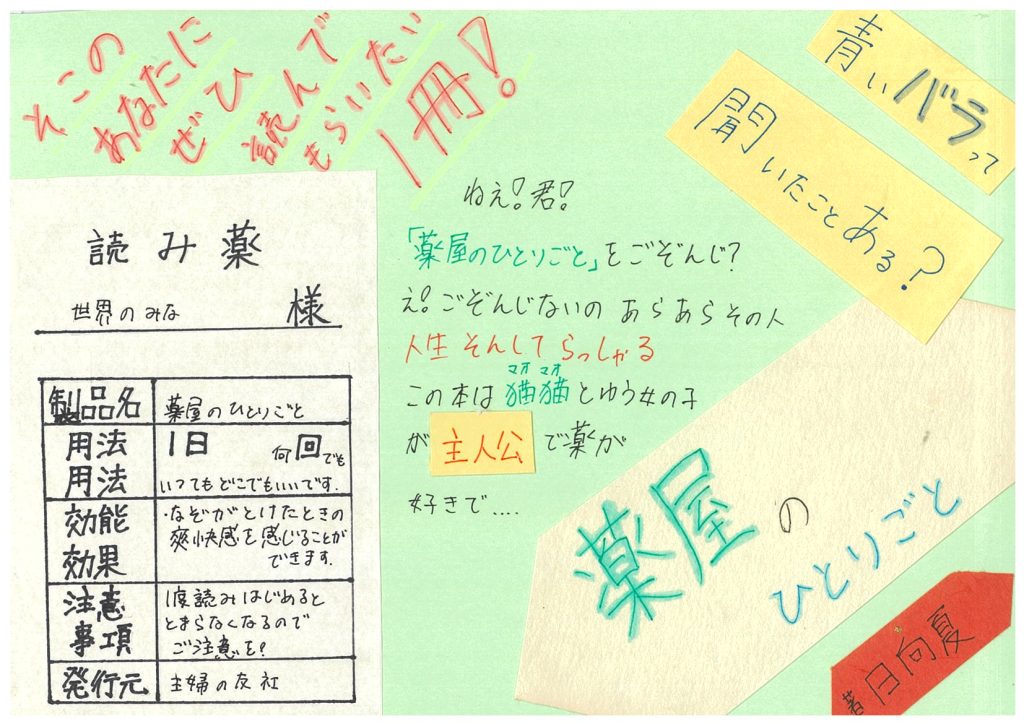 そこの
あなたに
ぜひ
読んで
もらいたい
1冊!
青いバラって
聞いたことある?
ねえ!君!
「薬屋のひとりごと」をごぞんじ?
え!ごぞんじないの あらあらその人
人生 そんしてらっしゃる
マオ マオ
この本は 猫猫とゆう女の子
が 主人公 で薬が
好きで....
読み薬
世界のみな 様
製品名 薬屋のひとりごと
用法 1日 何回でも
用法 いつでもどこでもいいです.
効能 ・なぞがとけたときの
効果 爽快感を感じることが
できます.
注意 1度読みはじめると
事項 とまらなくなるので
ご注意を!
発行元 主婦の友社
薬屋の
ひとりごと
著 日向夏